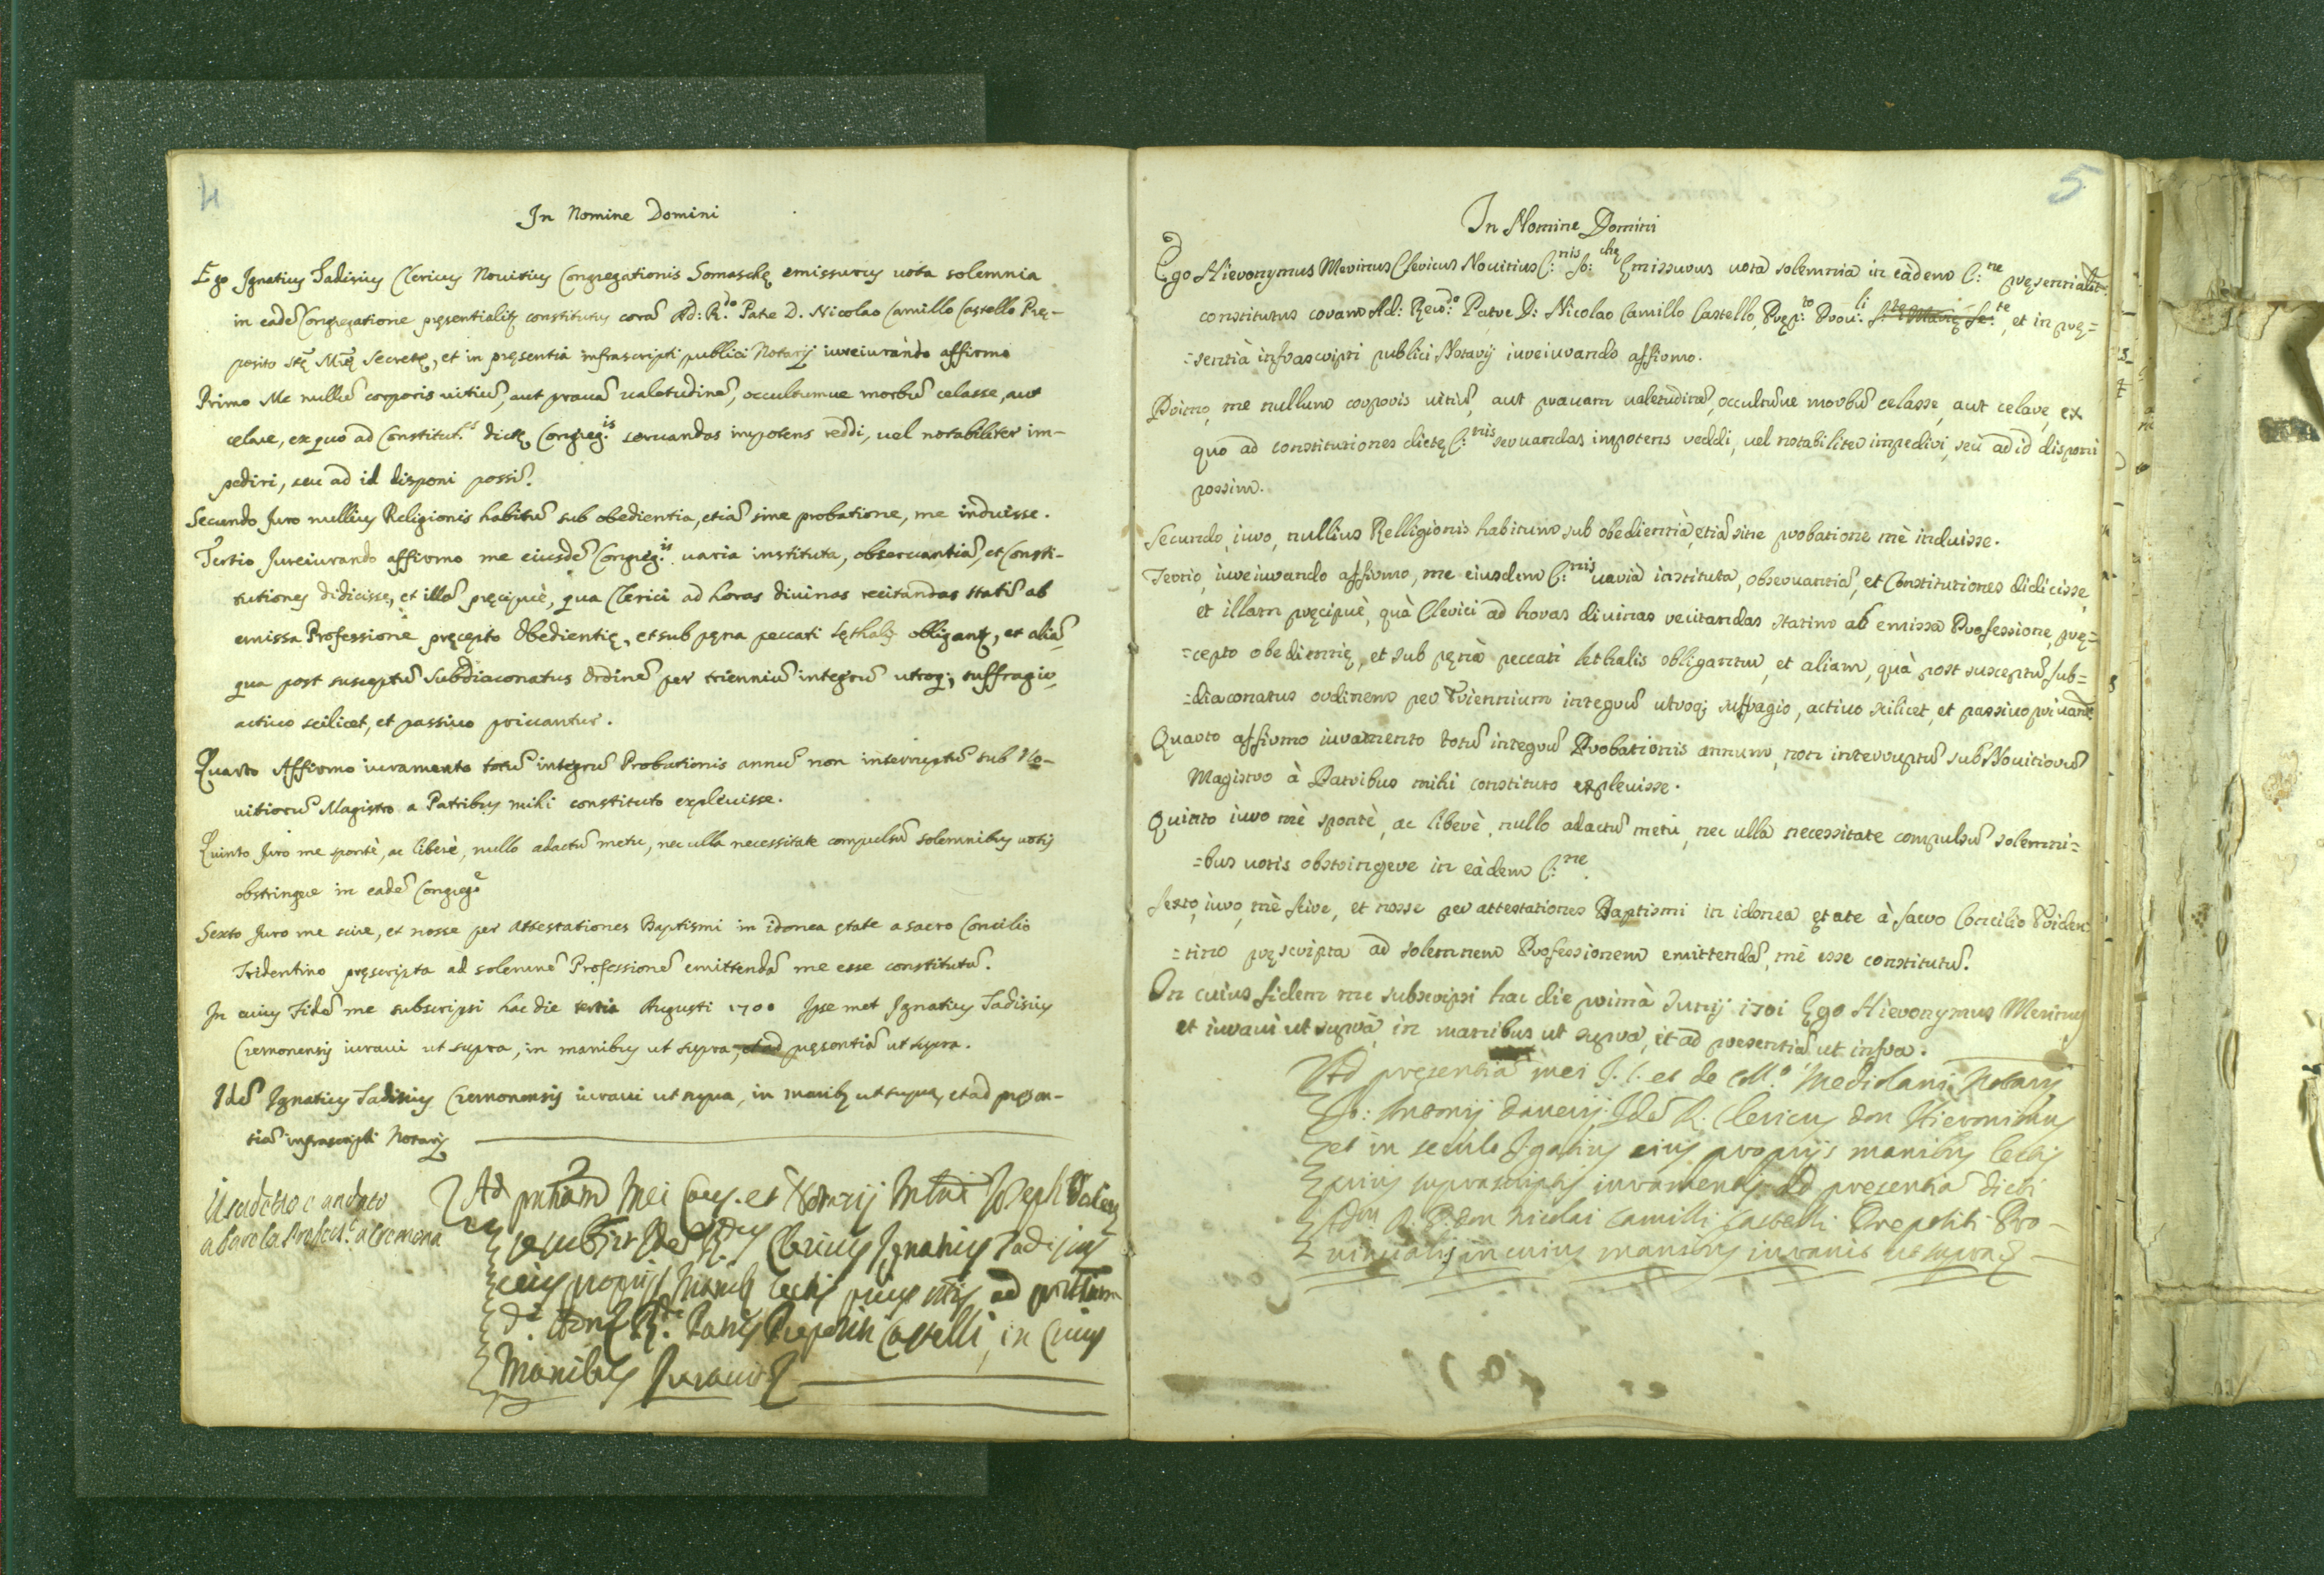 4
In Nomine Domini
Ego Ignatius Tadisius Clericus Novitius Congregationis Somaschę emissurus vota solemnia
in eadē Congregatione pręsentialitr constitutus corā Ad: R.do Patre D. Nicolao Camillo Castello Prę-
posito Stę Mrę Secretę, et in pręsentia infrascripti publici Notarij iureiurando affirmo
Primo Me nullū corporis uitiū, aut prauā ualetudinē, occultumue morbū celasse, aut
celare, ex quo ad Constitut.s dictę Congreg.is seruandas impotens reddi, uel notabiliter im-
pediri, seu ad id disponi possī.
Secundo Juro nullius Religionis habitū sub obedientia, etiā sine probatione, me induisse.
Tertio Jureiurando affirmo me eiusdē Congreg.is uaria instituta, obseruantiā, et Consti-
tutiones didicisse, et illā pręcipuè, qua Clerici ad horas diuinas recitandas statī ab
emissa Professione pręcepto Obedientię, et sub pęna peccati lęthalis obligantr, et aliā,
qua post susceptū Subdiaconatus Ordinē per trienniū integrū utroq; suffragio,
actiuo scilicet, et passiuo priuantur.
Quarto Affirmo iuramento totū integrū Probationis annū non interruptū sub No-
uitiorū Magistro a Patribus mihi constituto expleuisse.
Quinto Juro me spontè, ac liberè, nullo adactū metu, nec ulla necessitate compulsū solemnibus uotis
obstringere in eadē Congreg.e
Sexto Juro me scire, et nosse per attestationes Baptismi in idonea ętate a sacro Concilio
Tridentino pręscripta ad solemnē Professionē emittendā me esse constitutū.
In cuius Fidē me subscripsi hac die tertia Augusti 1700 Ipse met Ignatius Tadisius
Cremonensis iuraui ut supra, in manibus ut supra, et ad pręsentiā ut supra.
Idē Ignatius Tadisius Cremonensis iuraui ut supra, in manibs ut supra, et ad pręsen-
tiā infrascripti Notarij
è andato
a fare la Profess.e a Cremona
Ad pntiam Mei Caus. et Notarij Joseph
Idē R.dus Clericus Ignatius Tadisius
eius proprijs Manibs lectis prius ad
R.di Patris Prepositi Castelli, in Cuius
Manibus Jurauit
5
In Nomine Domini
Ego Hieronymus Merinus Clericus Nouitius C:nis So:chę Emissurus uota solemnia in eàdem C:ne pręsentialitr
constitutus coram Ad: Reu.do Patre D: Nicolao Camillo Castello, Pręp:to Prou:li S:tę Marię Se:tę, et in prę=
=sentià infrascripti publici Notarij iureiurando affirmo.
Primo, me nullum corporis uitiū, aut prauam ualetudinē, occultūue morbū celasse, aut celare, ex
quo ad constitutiones dictę C:nis seruandas impotens reddi, uel notabiliter impediri, seù ad id disponi
possim.
Secundo, iuro, nullius Relligionis habitum sub obedientià, etiā sine probatione mè induisse.
Tertio, iureiurando affirmo, me eiusdem C:nis uarià instituta, obseruantiā, et Constitutiones didicisse,
et illam pręcipuè, quà Clerici ad horas diuinas recitandas statim ab emissa Professione, prę=
=cepto obedientię, et sub pęnà peccati lethalis obligantur, et aliam, quà post susceptū Sub=
=diaconatus ordinem per Triennium integrū utroq; suffragio, actiuo scilicet, et passiuo priuantr
Quarto affirmo iuramento totū integrū Probationis annum, non interruptū sub Nouitiorū
Magistro à Patribus mihi constituto expleuisse.
Quinto iuro mè spontè, ac liberè, nullo adactū metù, nec ulla necessitate compulsū solemni=
=bus uotis obstringere in eàdem C:ne.
Sexto, iuro, mè scire, et nosse per attestationes Baptismi in idonea ętate à Sacro Concilio Triden=
=tino pręscripta ad solemnem Professionem emittendā, mè esse constitutū.
In cuius fidem me subscripsi hac die primà Junij 1701 Ego Hieronymus Merinus
et iuraui ut suprà, in manibus ut supra, et ad presentiā ut infra.
Ad presentiā mei J. C. et de Coll.o Mediolani Notarij
Jo: Antonij Idē R: Clericus Don Hieronimus
et in seculo Ignatius eius proprijs manibus lectis
prius suprascriptis iuramentis ad presentiā dicti
Adm R. P. Don Nicolai Camilli Castelli Prepositi Pro-
uincialis in cuius manibus iurauit ut supra